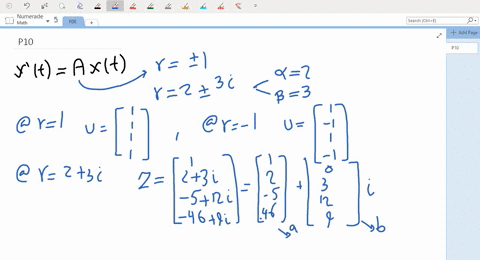 Numerade
Math
5
P10
Add Page
P10
P10
x'(t) = A x(t)
r = ± 1
r = 2 ± 3i
α = 2
β = 3
@ r = 1 u = [1 1 1 1] , @ r = -1 u = [1 -1 1 -1]
@ r = 2 + 3i Z = [1 2+3i -5+12i -46+9i] = [1 2 -5 -46] + [0 3 12 9] i
a
b